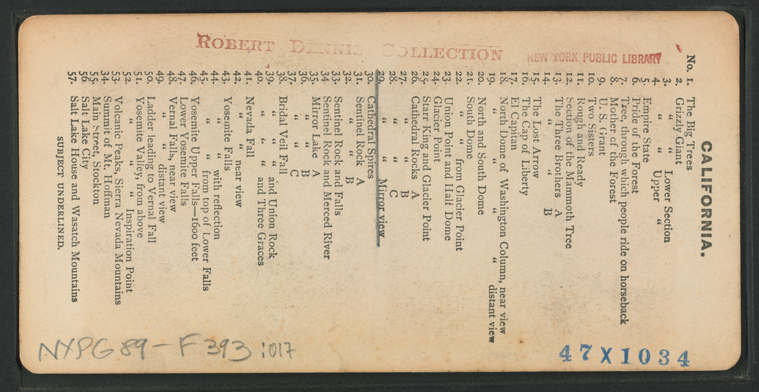 ROBERT DENNIS COLLECTION
NEW YORK PUBLIC LIBRARY
CALIFORNIA.
No. 1. The Big Trees
2. Grizzly Giant
3. " " Lower Section
4. " " Upper "
5. Empire State
6. Pride of the Forest
7. Tree, through which people ride on horseback
8. Mother of the Forest
9. U. S. Grant
10. Two Sisters
11. Rough and Ready
12. Section of the Mammoth Tree
13. The Three Brothers A
14. " " " B
15. The Lost Arrow
16. The Cap of Liberty
17. El Capitan
18. North Dome of Washington Column, near view
19. " " distant view
20. North and South Dome
21. South Dome
22. " " from Glacier Point
23. Union Point and Half Dome
24. Glacier Point
25. Starr King and Glacier Point
26. Cathedral Rocks A
27. " " B
28. " " C
29. " " Mirror view
30. Cathedral Spires
31. Sentinel Rock A
32. " " B
33. Sentinel Rock and Falls
34. Sentinel Rock and Merced River
35. Mirror Lake A
36. " " B
37. " " C
38. Bridal Veil Fall
39. " " " and Union Rock
40. " " " and Three Graces
41. Nevada Fall
42. " " near view
43. Yosemite Falls
44. " " with reflection
45. " " from top of Lower Falls
46. Yosemite Upper Falls—1600 feet
47. Lower Yosemite Falls
48. Vernal Falls, near view
49. " " distant view
50. Ladder leading to Vernal Fall
51. Yosemite Valley, from above
52. " " Inspiration Point
53. Volcanic Peaks, Sierra Nevada Mountains
54. Summit of Mt. Hoffman
55. Main Street, Stockton
56. Salt Lake City
57. Salt Lake House and Wasatch Mountains
SUBJECT UNDERLINED.
NYPG 89-F393:017
47X1034